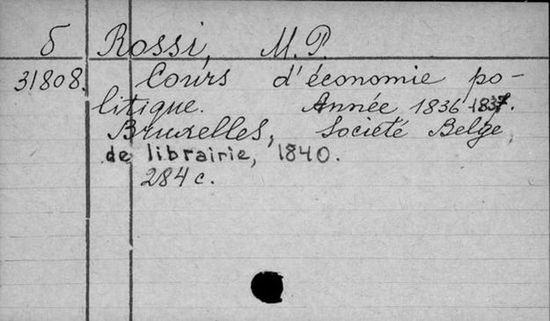 б Rossi, M. P.
31808. Cours d'économie po-
litique. Année 1836-1837.
Bruxelles, Société Belge
de librairie, 1840.
284 c.